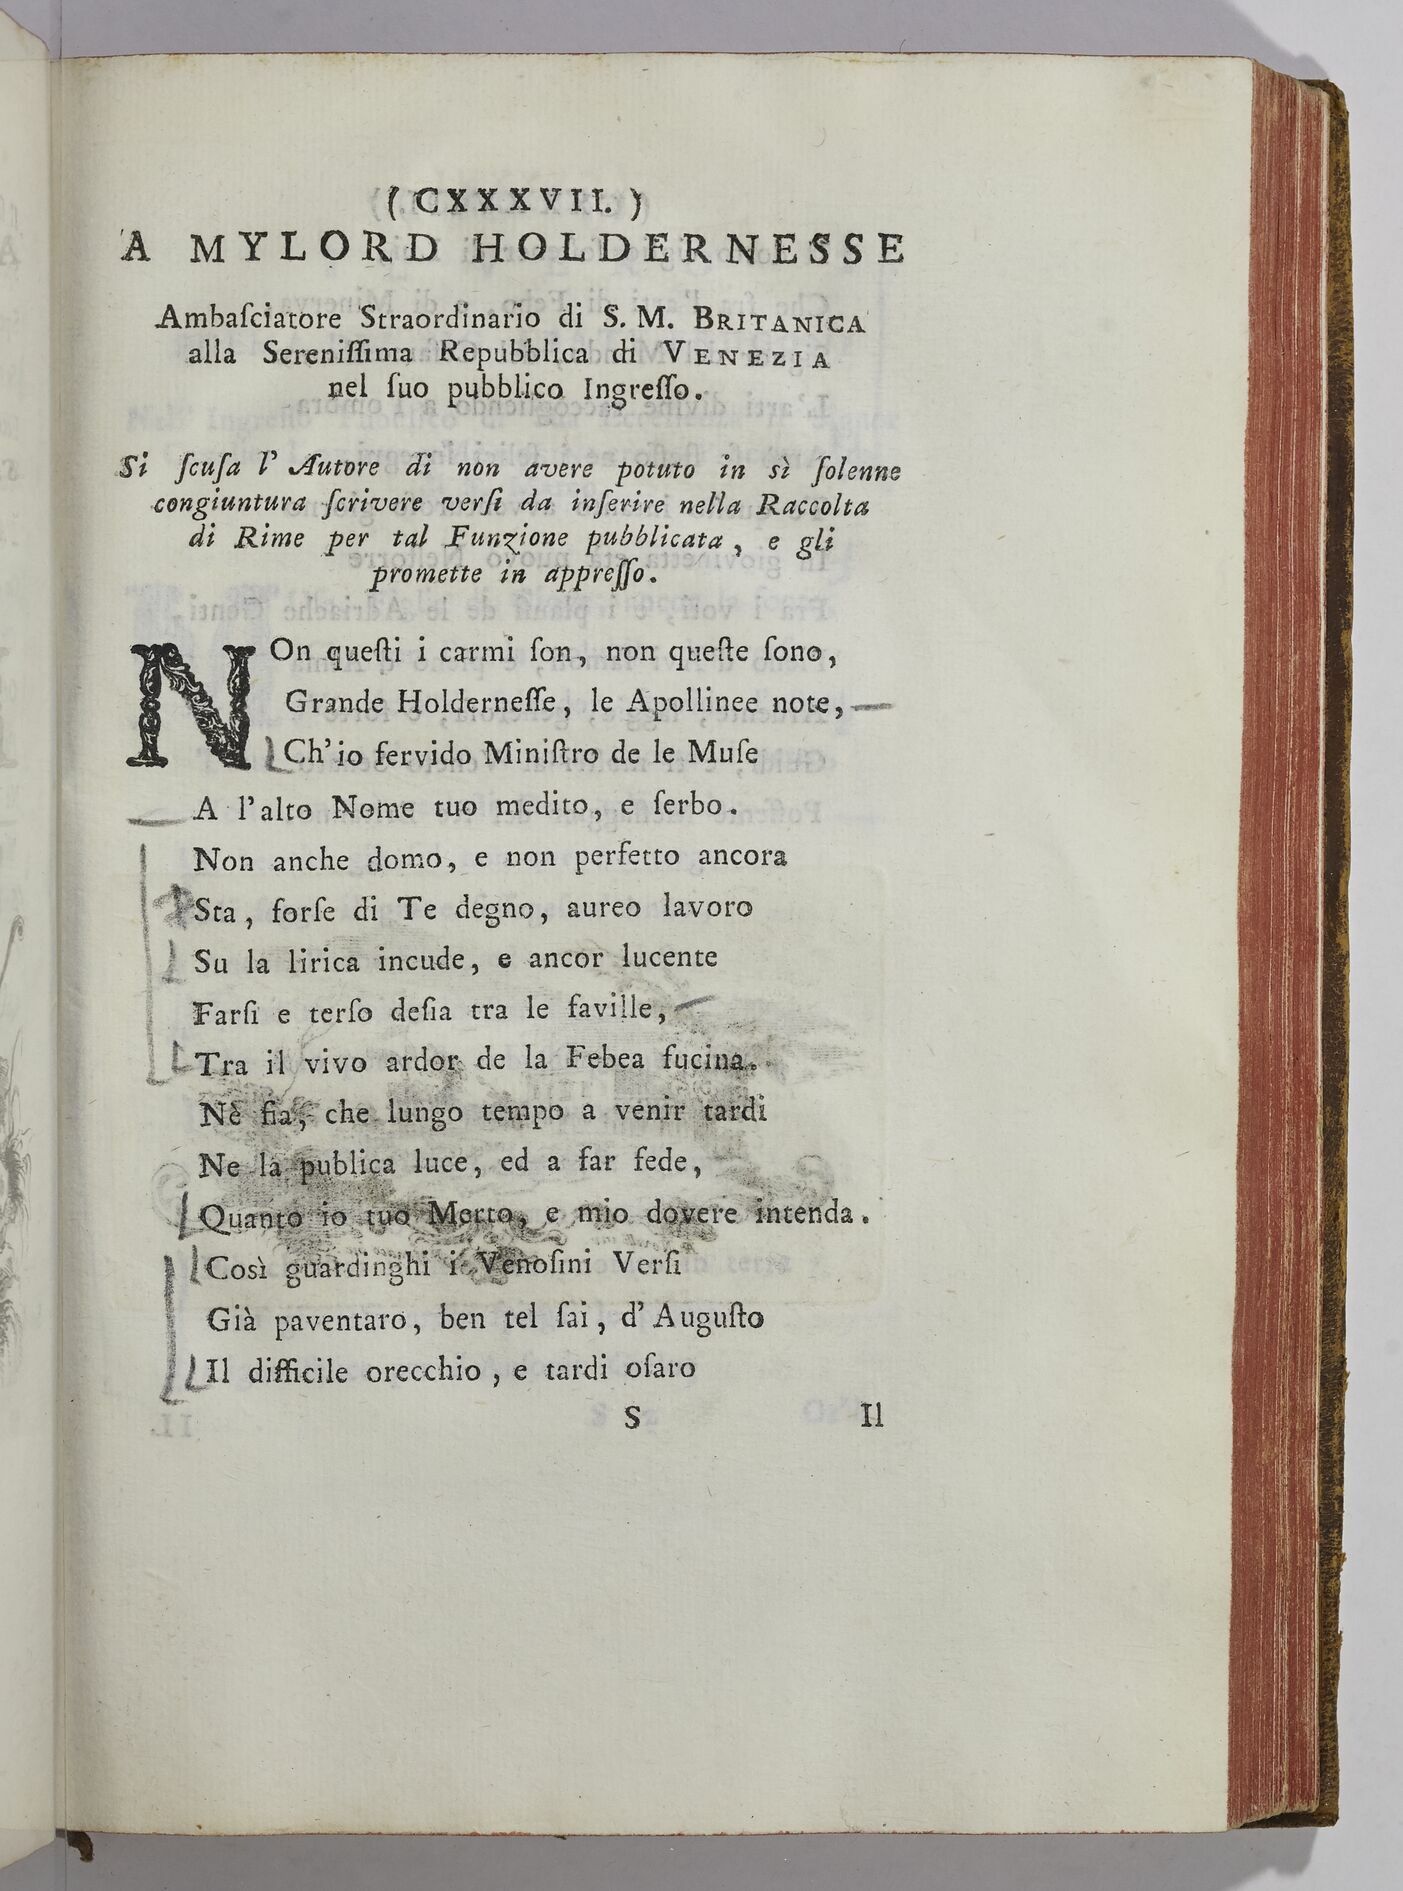 ( CXXXVII. )
A MYLORD HOLDERNESSE
Ambaſciatore Straordinario di S. M. BRITANICA
alla Sereniſſima Repubblica di VENEZIA
nel ſuo pubblico Ingreſſo.
Si ſcuſa l' Autore di non avere potuto in sì ſolenne
congiuntura ſcrivere verſi da inſerire nella Raccolta
di Rime per tal Funzione pubblicata, e gli
promette in appreſſo.
NOn queſti i carmi ſon, non queſte ſono,
Grande Holderneſſe, le Apollinee note,
Ch'io fervido Miniſtro de le Muſe
A l'alto Nome tuo medito, e ſerbo.
Non anche domo, e non perfetto ancora
Sta, forſe di Te degno, aureo lavoro
Su la lirica incude, e ancor lucente
Farſi e terſo deſia tra le faville,
Tra il vivo ardor de la Febea fucina.
Nè fia, che lungo tempo a venir tardi
Ne la publica luce, ed a far fede,
Quanto io tuo Merto, e mio dovere intenda.
Così guardinghi i Venoſini Verſi
Già paventaro, ben tel ſai, d'Auguſto
Il difficile orecchio, e tardi oſaro
S Il